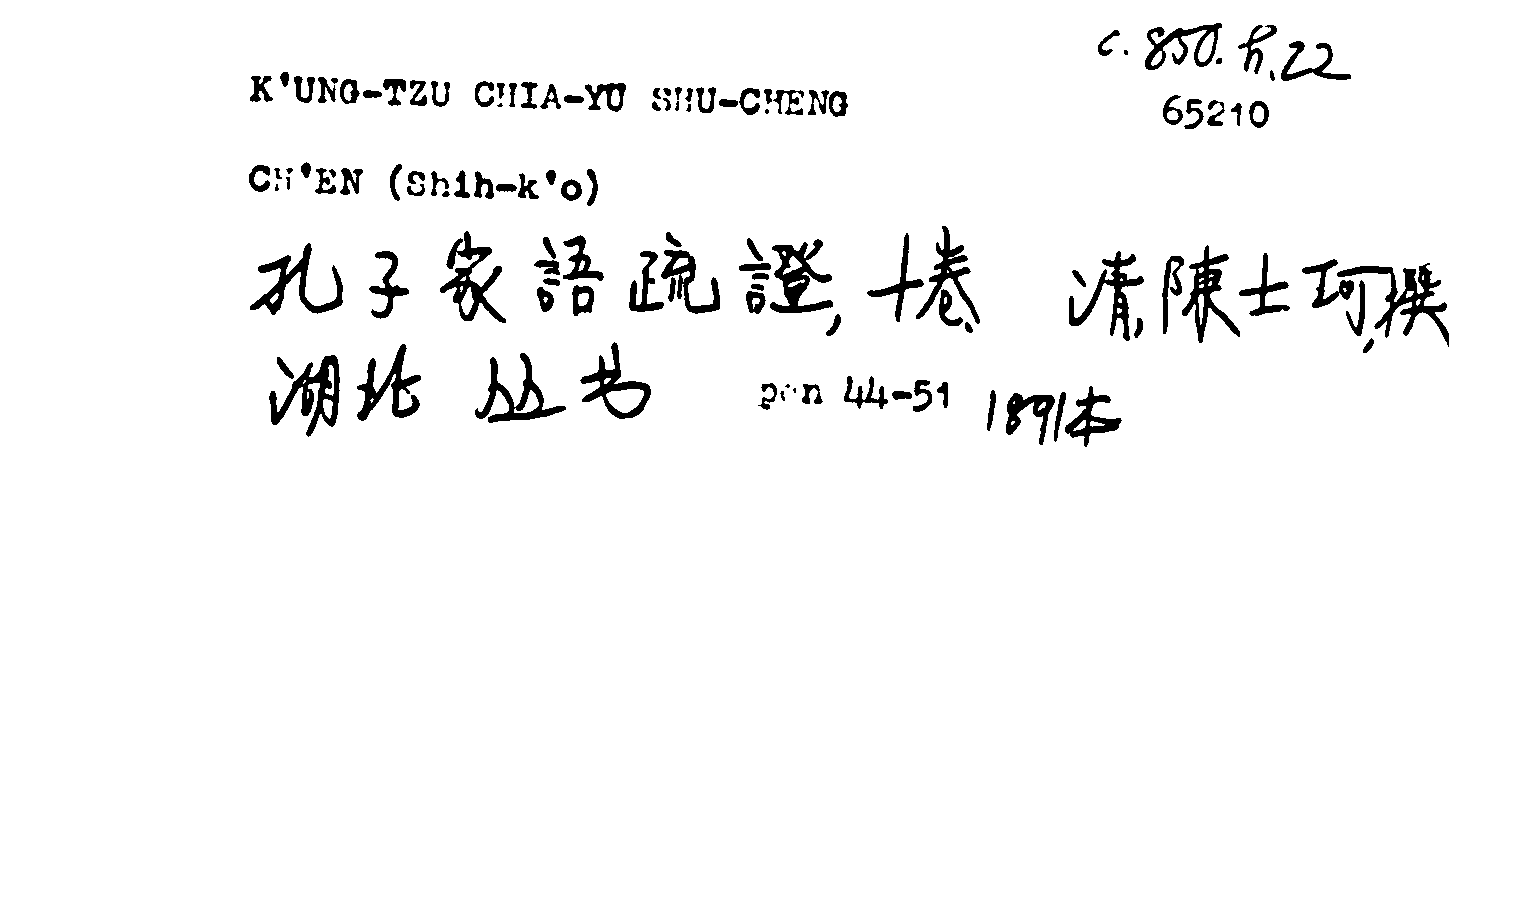 c. 850. h. 22
65210
K'UNG-TZU CHIA-YU SHU-CHENG
CH'EN (Shih-k'o)
孔子家語疏證, 十卷 清, 陳士珂, 撰
湖北 丛书 pen 44-51 1891本